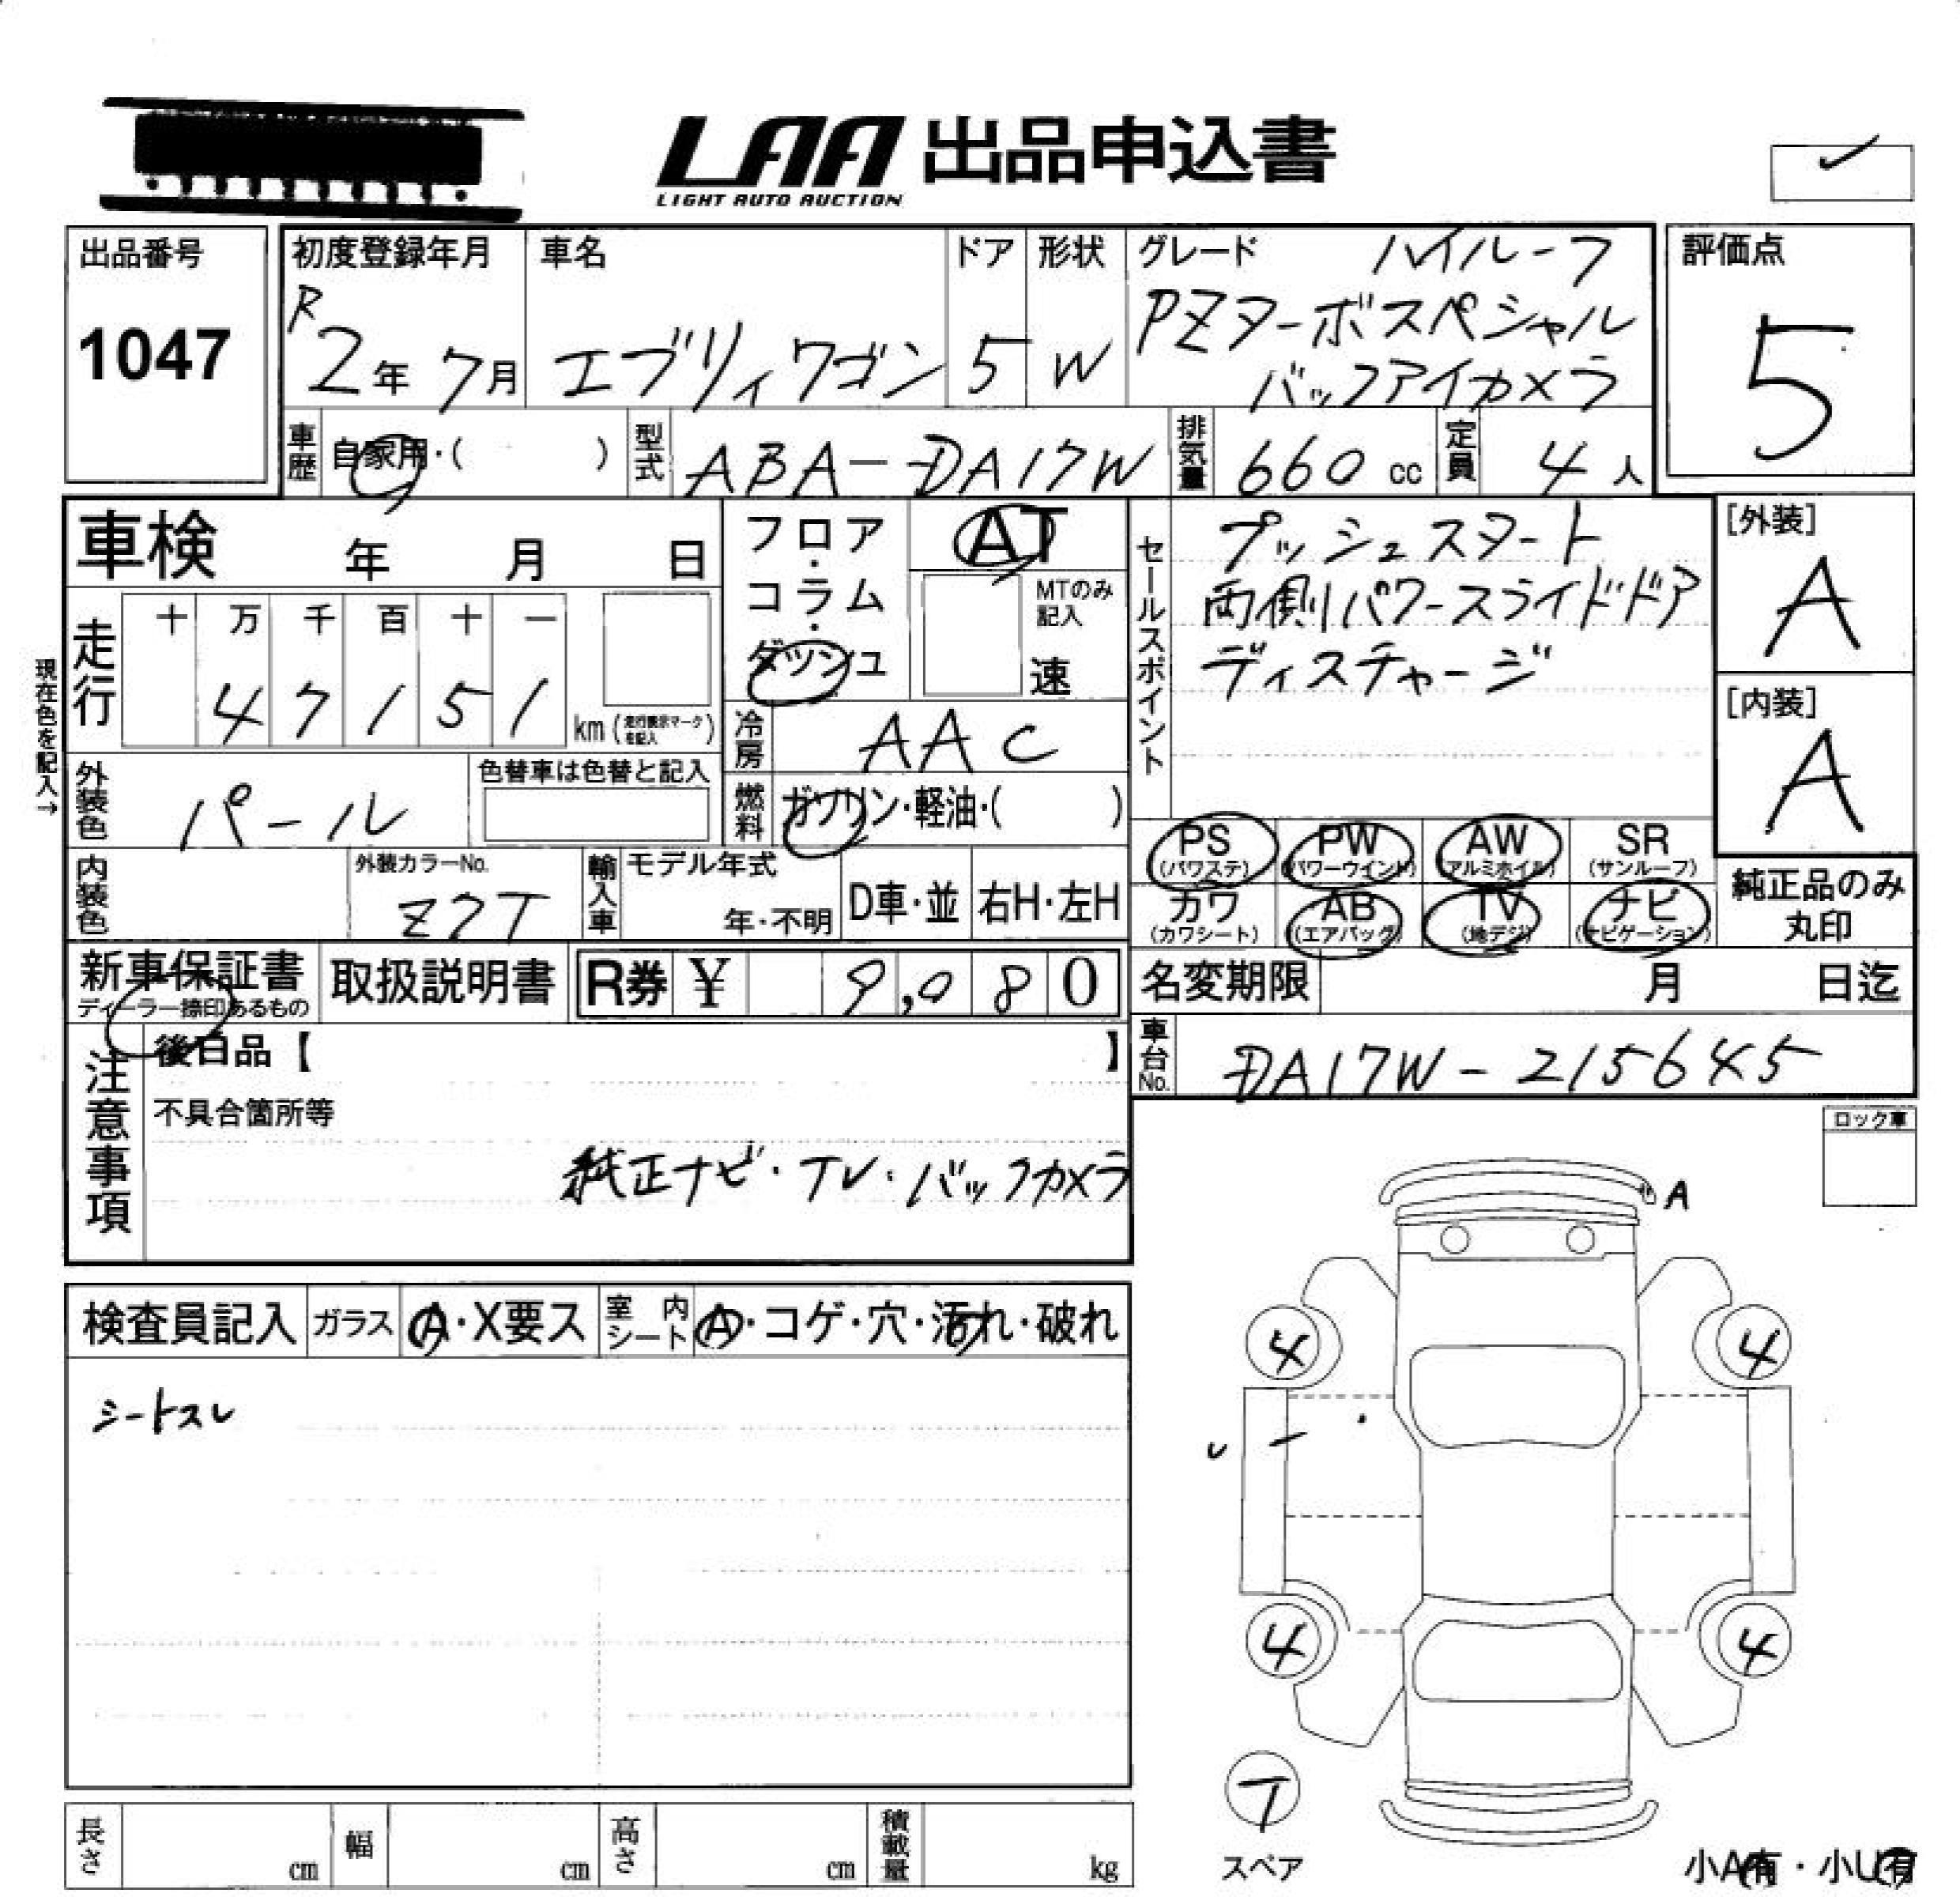 LAA 出品申込書
LIGHT AUTO AUCTION
出品番号
1047
初度登録年月
R
2年 7月
車名
エブリィワゴン
ドア
5
形状
W
グレード ハイルーフ
PZターボスペシャル
バックアイカメラ
評価点
5
車歴 自家用・( )
型式 ABA-DA17W
排気量 660 cc
定員 4人
車検 年 月 日
フロア・コラム・ダッシュ
AT
MTのみ記入
速
セールスポイント
プッシュスタート
両側パワースライドドア
ディスチャージ
[外装]
A
[内装]
A
現在色を記入→
走行
十 万 千 百 十 一
4 7 1 5 1
km(走行表示マークを記入)
冷房 AAC
外装色 パール
色替車は色替と記入
燃料 ガソリン・軽油・( )
PS (パワステ)
PW (パワーウインド)
AW (アルミホイル)
SR (サンルーフ)
カワ (カワシート)
AB (エアバッグ)
TV (地デジ)
ナビ (ナビゲーション)
純正品のみ
丸印
内装色
外装カラーNo.
Z7T
輸入車
モデル年式
年・不明
D車・並
右H・左H
新車保証書
ディーラー捺印あるもの
取扱説明書
R券 ¥ 9,080
名変期限 月 日迄
車台No. DA17W-215645
注意事項
後日品【 】
不具合箇所等
純正ナビ・TV・バックカメラ
ロック車
A
検査員記入
ガラス A・X要ス
室内シート A・コゲ・穴・汚れ・破れ
シートスレ
4
4
4
4
ワ
スペア
長さ cm
幅 cm
高さ cm
積載量 kg
小A有・小U有